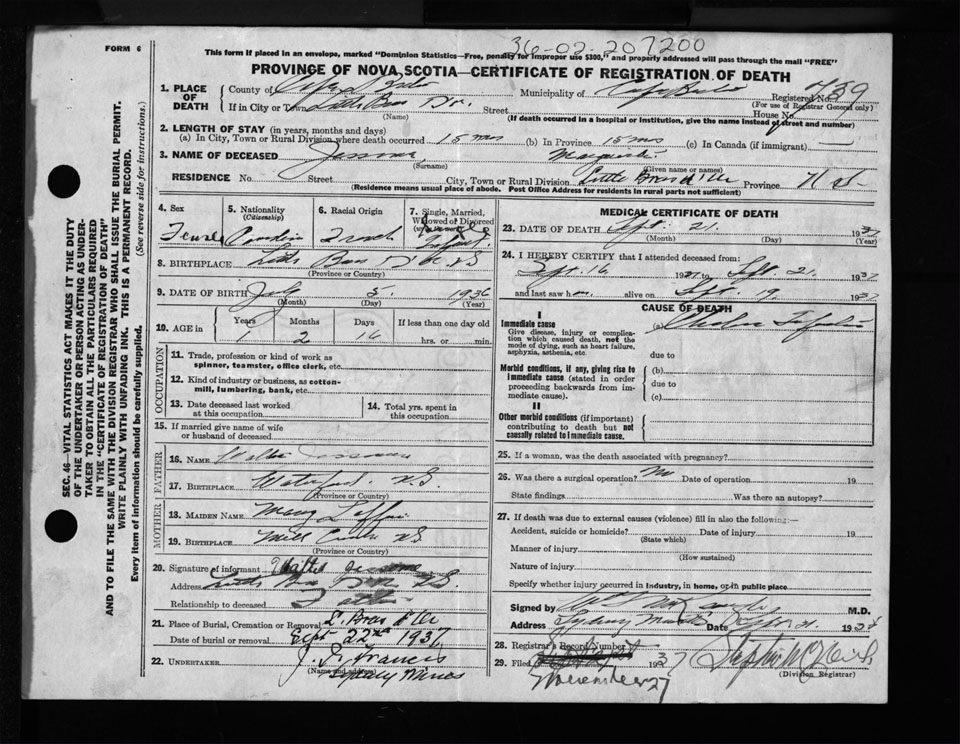 36-02-207200
FORM 6
This form if placed in an envelope, marked "Dominion Statistics—Free, penalty for improper use $300," and properly addressed will pass through the mail "FREE"
PROVINCE OF NOVA SCOTIA—CERTIFICATE OF REGISTRATION OF DEATH
1. PLACE OF DEATH
County of Cape Breton Municipality of Cape Breton Registered No.
(For use of Registrar General only)
If in City or Town Little Bras Dr. Street House No.
(Name) (If death occurred in a hospital or institution, give the name instead of street and number)
2. LENGTH OF STAY (in years, months and days)
(a) In City, Town or Rural Division where death occurred 15 mos (b) In Province 15 mos (c) In Canada (if immigrant)
3. NAME OF DECEASED Jessome
(Surname) (Given name or names)
RESIDENCE No. Street City, Town or Rural Division Little Bras d'Or Province N.S.
(Residence means usual place of abode. Post Office Address for residents in rural parts not sufficient)
4. Sex 5. Nationality (Citizenship) 6. Racial Origin 7. Single, Married, Widowed or Divorced
Female Canadian French Single Infant
8. BIRTHPLACE Little Bras D'Or N.S
(Province or Country)
9. DATE OF BIRTH July 5 1936
(Month) (Day) (Year)
10. AGE in Years Months Days If less than one day old
1 2 16 hrs. or min.
OCCUPATION
11. Trade, profession or kind of work as spinner, teamster, office clerk, etc.
12. Kind of industry or business, as cotton-mill, lumbering, bank, etc.
13. Date deceased last worked at this occupation
14. Total yrs. spent in this occupation
15. If married give name of wife or husband of deceased
FATHER
16. NAME Jessome
17. BIRTHPLACE Waterford N.S.
(Province or Country)
MOTHER
18. MAIDEN NAME Mary
19. BIRTHPLACE Mill Creek N.S
(Province or Country)
20. Signature of informant Walter Jessome
Address Little Bras Dor N.S
Relationship to deceased Father
21. Place of Burial, Cremation or Removal L. Bras d'Or
Date of burial or removal Sept 22nd 1937
22. UNDERTAKER J. Francis
(Name and address) Sydney Mines
MEDICAL CERTIFICATE OF DEATH
23. DATE OF DEATH Sept. 21. 1937
(Month) (Day) (Year)
24. I HEREBY CERTIFY that I attended deceased from:
Sept. 16 1937 to Sept. 21. 1937
and last saw h alive on Sept. 19. 1937
CAUSE OF DEATH
I
Immediate cause
Give disease, injury or complication which caused death, not the mode of dying, such as heart failure, asphyxia, asthenia, etc.
(a) Cholera Infantum
due to
Morbid conditions, if any, giving rise to immediate cause (stated in order proceeding backwards from immediate cause).
(b)
due to
(c)
II
Other morbid conditions (if important) contributing to death but not causally related to immediate cause.
25. If a woman, was the death associated with pregnancy?
26. Was there a surgical operation? No Date of operation 19
State findings Was there an autopsy?
27. If death was due to external causes (violence) fill in also the following:—
Accident, suicide or homicide? Date of injury 19
(State which)
Manner of injury
(How sustained)
Nature of injury
Specify whether injury occurred in industry, in home, or in public place
Signed by M.D.
Address Sydney Mines Date Sept 21. 1937
28. Registrar's Record Number
29. Filed 1937
November 27
(Division Registrar)
SEC. 46—VITAL STATISTICS ACT MAKES IT THE DUTY
OF THE UNDERTAKER OR PERSON ACTING AS UNDERTAKER TO OBTAIN ALL THE PARTICULARS REQUIRED
IN THE "CERTIFICATE OF REGISTRATION OF DEATH"
AND TO FILE THE SAME WITH THE DIVISION REGISTRAR WHO SHALL ISSUE THE BURIAL PERMIT.
WRITE PLAINLY WITH UNFADING INK. THIS IS A PERMANENT RECORD.
Every item of information should be carefully supplied. (See reverse side for instructions.)